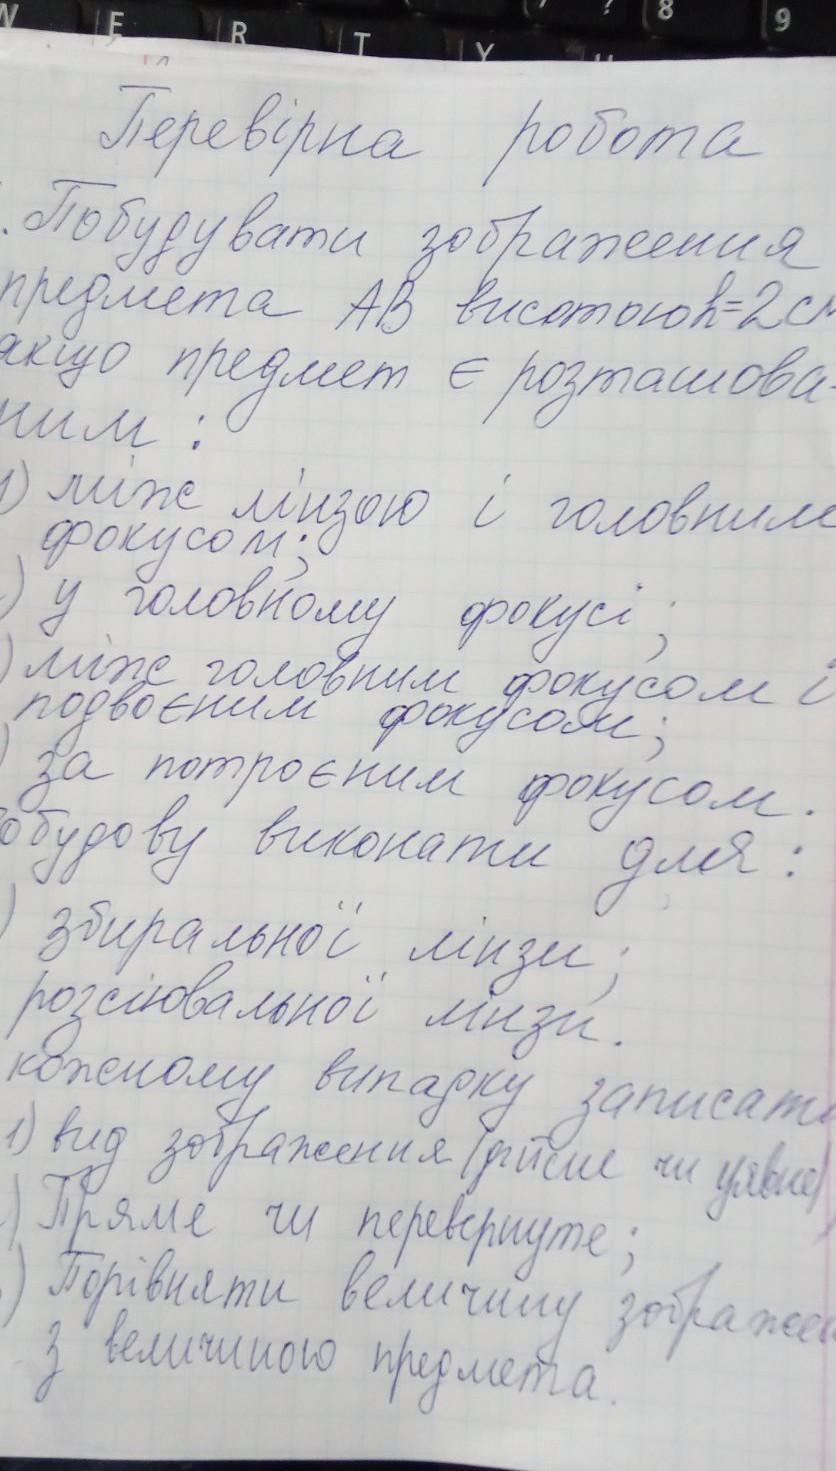 W E R T Y 7 ? 8 9
Перевірна робота
. Побудувати зображення
предмета АВ висотою h=2см
якщо предмет є розташова-
ним :
1) між лінзою і головним
фокусом;
) у головному фокусі;
) між головним фокусом і
подвоєним фокусом;
) за потроєним фокусом.
обудову виконати для :
) збиральної лінзи;
розсіювальної лінзи.
кожному випадку записати
1) вид зображення (дійсне чи уявне)
) Пряме чи перевернуте;
) Порівняти величину зображен
з величиною предмета.